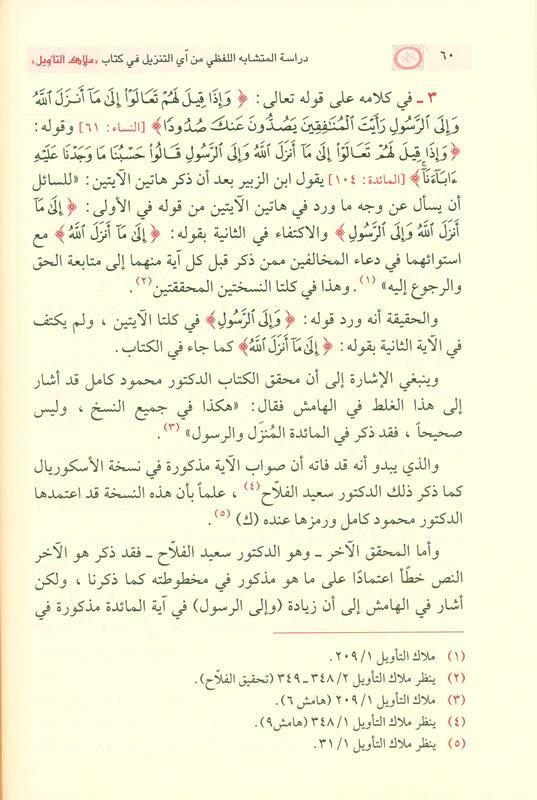 ٦٠ دراسة المتشابه اللفظي من آي التنزيل في كتاب «ملاك التأويل»
٣ ـ في كلامه على قوله تعالى: ﴿ وَإِذَا قِيلَ لَهُمْ تَعَالَوْا إِلَىٰ مَا أَنزَلَ اللَّهُ
وَإِلَى الرَّسُولِ رَأَيْتَ الْمُنَافِقِينَ يَصُدُّونَ عَنكَ صُدُودًا﴾ [النساء: ٦١] وقوله:
﴿وَإِذَا قِيلَ لَهُمْ تَعَالَوْا إِلَىٰ مَا أَنزَلَ اللَّهُ وَإِلَى الرَّسُولِ قَالُوا حَسْبُنَا مَا وَجَدْنَا عَلَيْهِ
ءَابَاءَنَا﴾ [المائدة: ١٠٤] يقول ابن الزبير بعد أن ذكر هاتين الآيتين: «للسائل
أن يسأل عن وجه ما ورد في هاتين الآيتين من قوله في الأولى: ﴿ إِلَىٰ مَا
أَنزَلَ اللَّهُ وَإِلَى الرَّسُولِ ﴾ والاكتفاء في الثانية بقوله: ﴿ إِلَىٰ مَا أَنزَلَ اللَّهُ ﴾ مع
استوائهما في دعاء المخالفين ممن ذكر قبل كل آية منهما إلى متابعة الحق
والرجوع إليه» (١). وهذا في كلتا النسختين المحققتين(٢).
والحقيقة أنه ورد قوله: ﴿ وَإِلَى الرَّسُولِ﴾ في كلتا الآيتين ، ولم يكتف
في الآية الثانية بقوله: ﴿ إِلَىٰ مَا أَنزَلَ اللَّهُ﴾ كما جاء في الكتاب.
وينبغي الإشارة إلى أن محقق الكتاب الدكتور محمود كامل قد أشار
إلى هذا الغلط في الهامش فقال: «هكذا في جميع النسخ ، وليس
صحيحاً ، فقد ذكر في المائدة المُنزَل والرسول» (٣).
والذي يبدو أنه قد فاته أن صواب الآية مذكورة في نسخة الأسكوريال
كما ذكر ذلك الدكتور سعيد الفلاّح(٤) ، علماً بأن هذه النسخة قد اعتمدها
الدكتور محمود كامل ورمزها عنده (ك) (٥).
وأما المحقق الآخر ـ وهو الدكتور سعيد الفلاّح ـ فقد ذكر هو الآخر
النص خطأ اعتمادًا على ما هو مذكور في مخطوطته كما ذكرنا ، ولكن
أشار في الهامش إلى أن زيادة (وإلى الرسول) في آية المائدة مذكورة في
(١) ملاك التأويل ٢٠٩/١.
(٢) ينظر ملاك التأويل ٣٤٨/٢ ـ ٣٤٩ (تحقيق الفلاّح).
(٣) ملاك التأويل ٢٠٩/١ (هامش ٦).
(٤) ينظر ملاك التأويل ٣٤٨/١ (هامش٩).
(٥) ينظر ملاك التأويل ٣١/١.